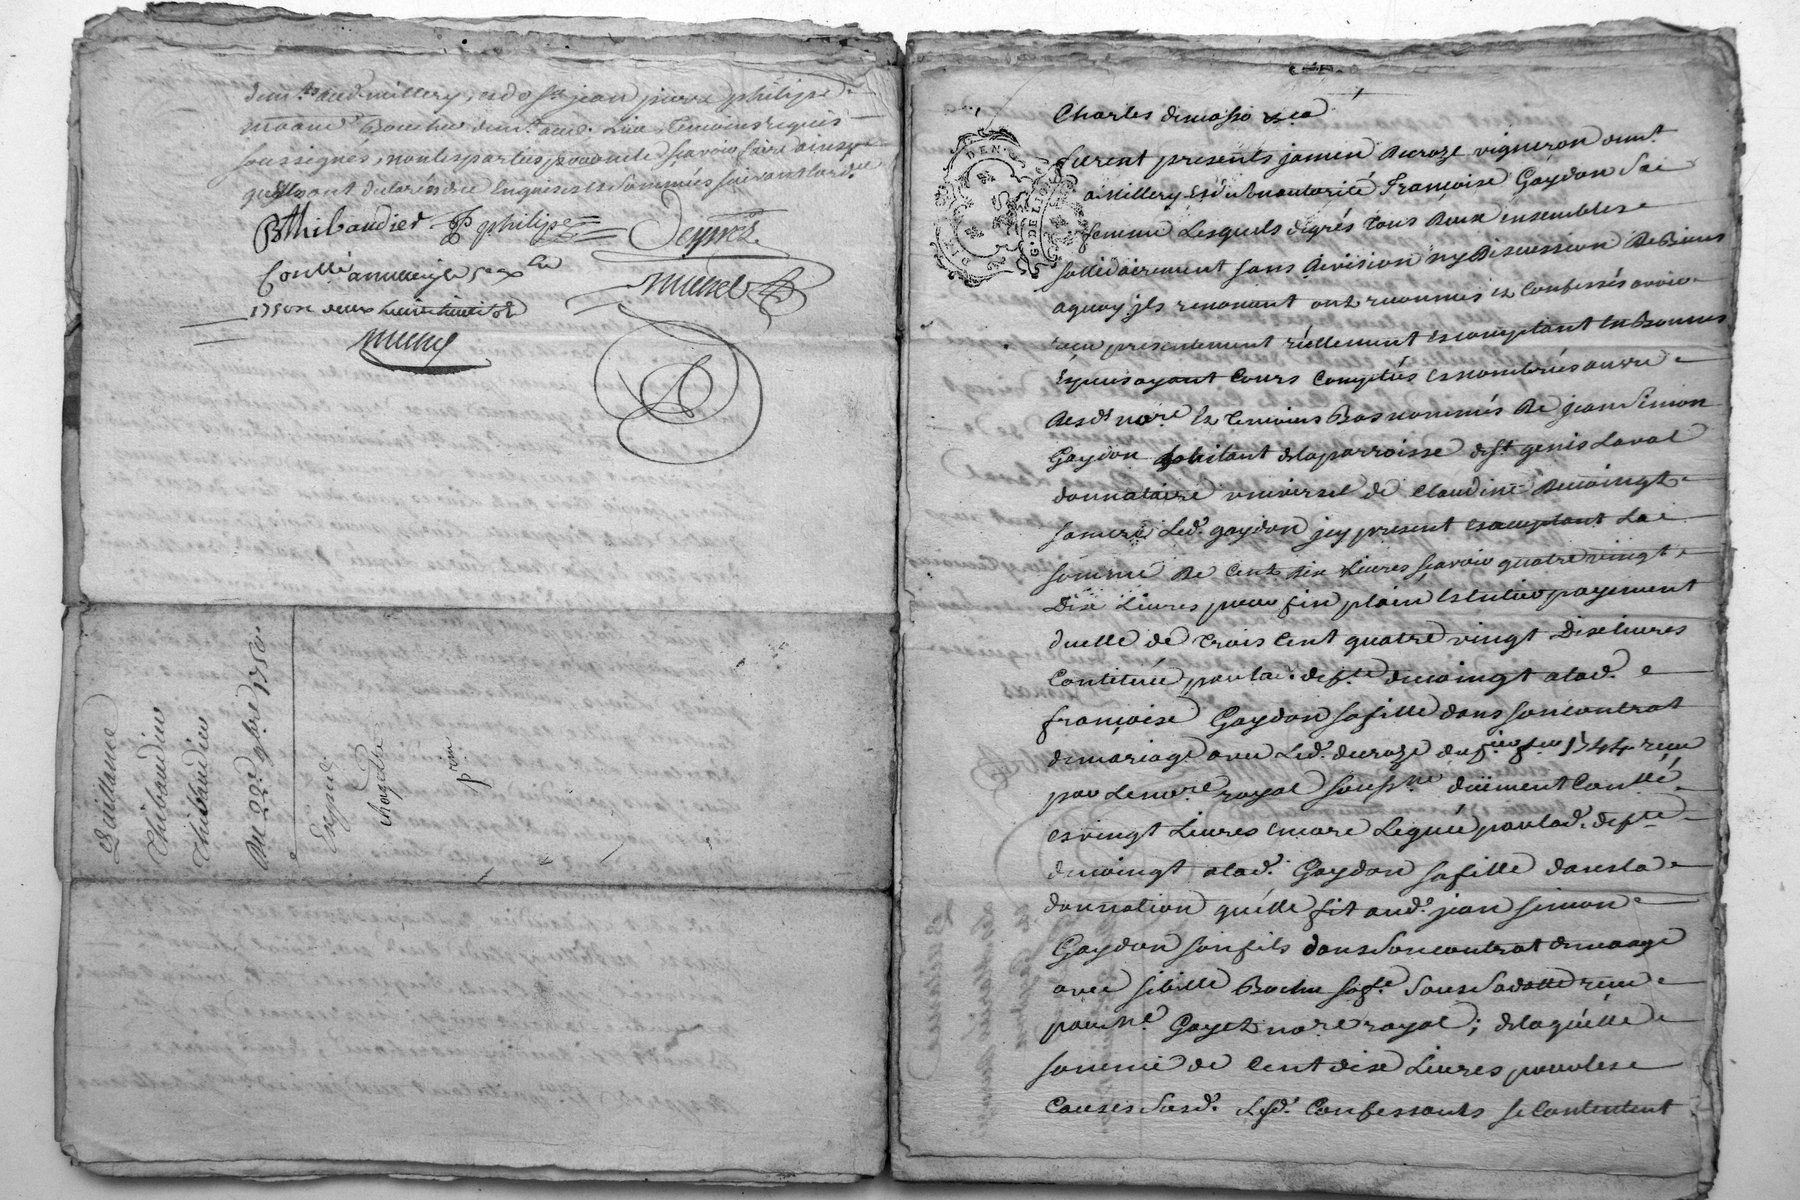 demt. aud. millery, et de sr. jean pierre philipe
Bouchu demt. aud. Lieu temoins requis
soussignés, non les parties pour ne scavoir faire ainsy
qu'elles ont declaré de ce enquises et sommées suivant l'ord.
BThibaudier JP philipe Deprez
Conllé a millery le
1750 Munet
Munet
Quittance
Thibaudier
Thibaudier
Du 22e. 9bre 1750
Expedié
Charles
furent presents Decroze vigneron demt.
a Millery et de son autorité Françoise Gaydon sa
femme Lesquels degrés tous deux ensemble
solidairement sans division ny discussion de Biens
a quoy ils renoncent ont reconnus et confessés avoir
recu presentement réellement et comptant en Bonnes
Especes ayant Cours Comptées et nombrées au vu
desd. nore. et temoins Bas nommés de jean Simon
Gaydon habitant de la parroisse de st. genis Laval
donnataire universel de Claudine Ducoingt
sa mere Led. gaydon icy present et acceptant La
somme de Cent dix Livres scavoir quatre vingt
Dix Livres pour fin plein et entier payement
d'celle de trois Cent quatre vingt Dix livres
Constituée par lad. deffte. ducoingt a lad.
françoise Gaydon sa fille dans son contrat
de mariage avec Led. decroze du 1744 recu
par Le nore. royal soussne. düement Conllé.
et vingt Livres encore Leguée par lad. deffte.
ducoingt a lad. Gaydon sa fille dans la
donnation qu'elle fit aud. jean simon
Gaydon son fils dans son contrat de mariage
avec sibille Bochu sa fe. sous sa datte recu
par Me. Gayet nore. royal ; de laquelle
somme de Cent dix Livres pour les
Causes susd. Lesd. Confessants se Contentent